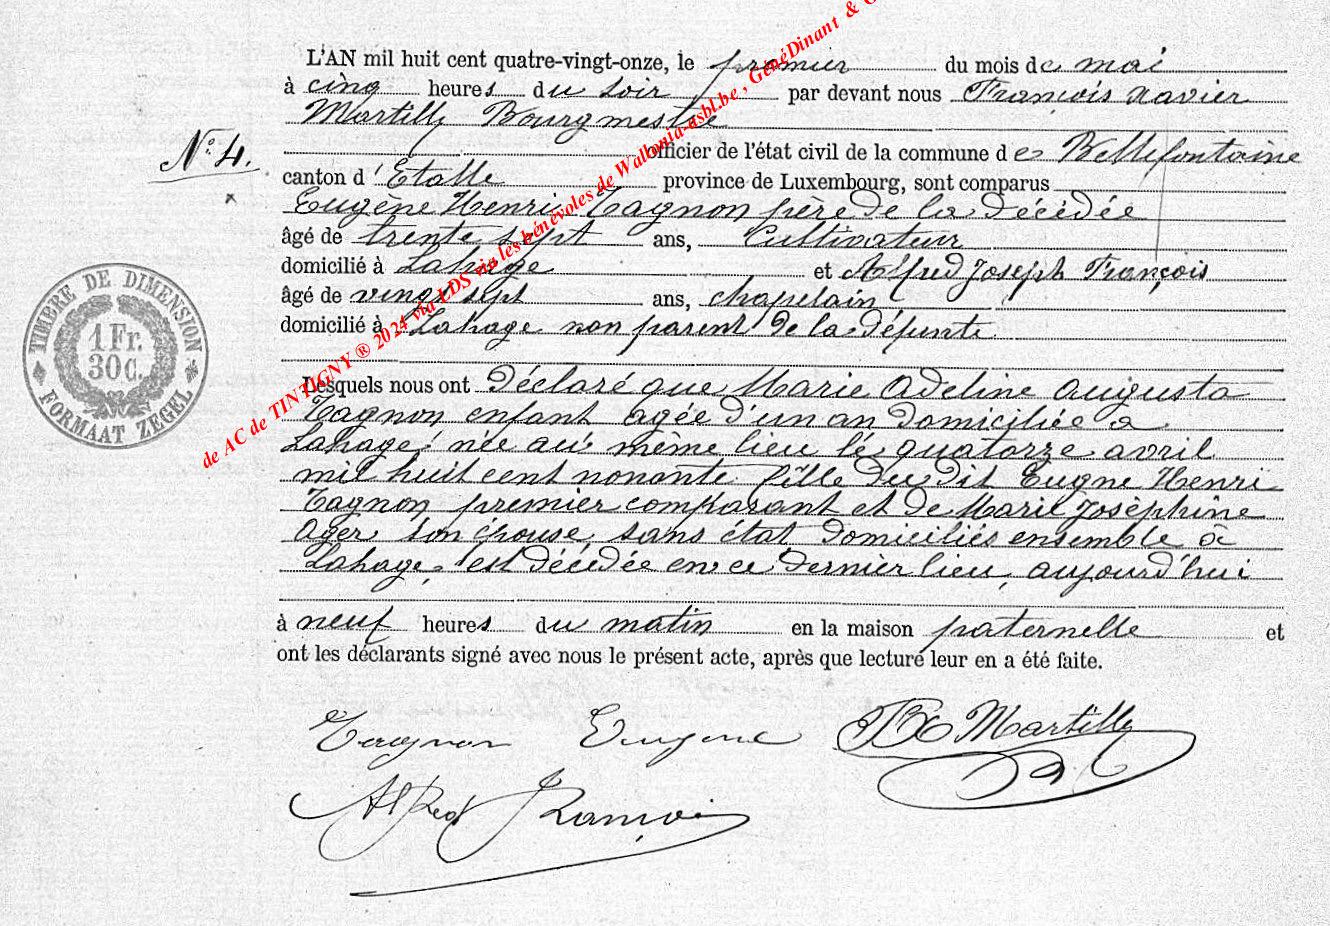 L'AN mil huit cent quatre-vingt-onze, le premier du mois de mai
à cinq heures du soir par devant nous François Xavier
Martilly Bourgmestre
N° 4.
officier de l'état civil de la commune de Bellefontaine
canton d'Etalle province de Luxembourg, sont comparus
Eugène Henri Tagnon père de la décédée
âgé de trente sept ans, Cultivateur
domicilié à Lahage et Alfred Joseph François
âgé de vingt sept ans, chapelain
domicilié à Lahage non parent de la défunte
Lesquels nous ont Déclaré que Marie Adeline Augusta
Tagnon enfant agée d'un an domiciliée a
Lahage, née au même lieu le quatorze avril
mil huit cent nonante fille du dit Eugne Henri
Tagnon premier comparant et de Marie Joséphine
Ager son épouse, sans état, domiciliés ensemble à
Lahage, est décédée en ce dernier lieu, aujourd'hui
à neuf heures du matin en la maison paternelle et
ont les déclarants signé avec nous le présent acte, après que lecture leur en a été faite.
Tagnon Eugene Martilly
Alfred François
TIMBRE DE DIMENSION
1 Fr.
30 C.
FORMAAT ZEGEL
de AC de TINTIGNY ® 2024 via LDS via les bénévoles de Wallonia-asbl.be, GénéDinant &